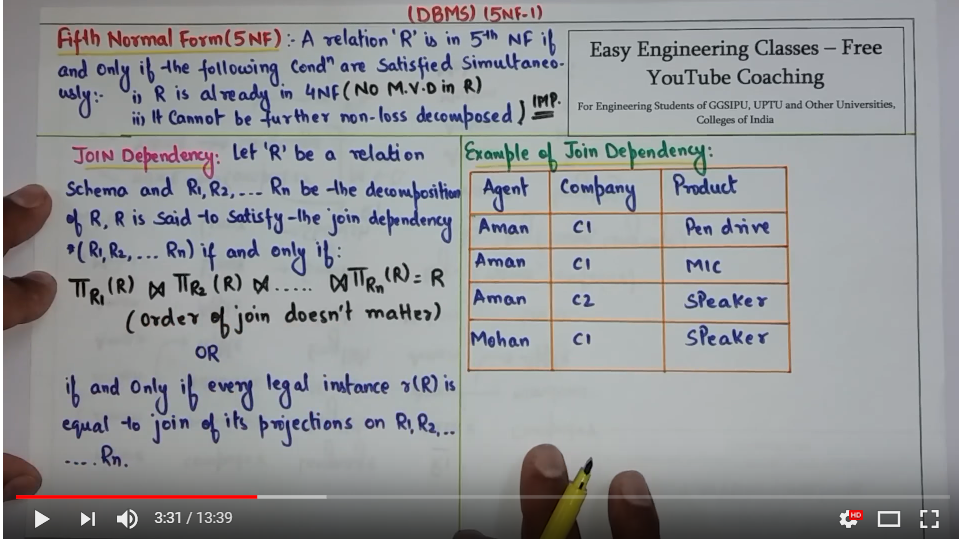 (DBMS) (5NF-1)
Fifth Normal Form (5NF) :- A relation 'R' is in 5th NF if
and only if the following Condn are Satisfied Simultaneo-
usly:- i) R is already in 4NF (NO M.V.D in R)
ii) It Cannot be further non-loss decomposed } IMP.
Easy Engineering Classes – Free
YouTube Coaching
For Engineering Students of GGSIPU, UPTU and Other Universities,
Colleges of India
JOIN Dependency: Let 'R' be a relation
Schema and R1, R2, .... Rn be the decomposition
of R, R is said to satisfy the join dependency
*(R1, R2, ... Rn) if and only if:
πR1(R) ⋈ πR2(R) ⋈ ..... ⋈ πRn(R) = R
(order of join doesn't matter)
OR
if and Only if every legal instance r(R) is
equal to join of its projections on R1, R2, ..
.... Rn.
Example of Join Dependency:
Agent Company Product
Aman C1 Pen drive
Aman C1 MIC
Aman C2 SPeaker
Mohan C1 SPeaker
3:31 / 13:39
HD